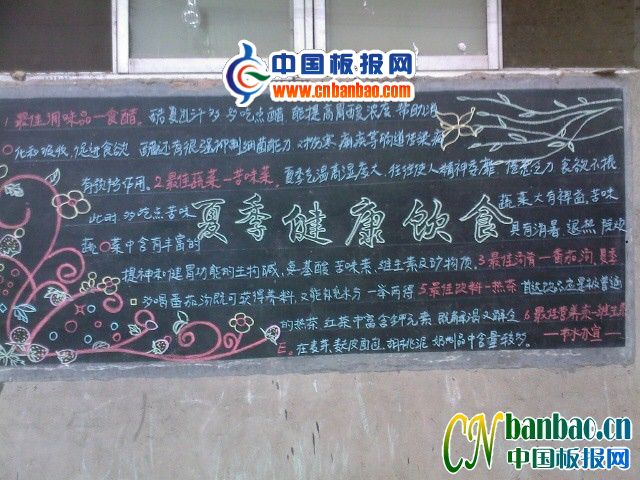 中国板报网
www.cnbanbao.cn
1最佳调味品一食醋. 酷夏出汁多 多吃点醋 能提高胃酸浓度 帮助消
化和吸收,促进食欲 醋还有很强抑制细菌能力 对伤寒 痢疾等肠道传染病
有预防作用。2.最佳蔬菜一苦味菜. 夏季气温高湿度大 往往使人精神 食欲不振
此时 多吃点苦味 蔬菜大有裨益.苦味
夏季健康饮食
蔬菜中含有丰富的 具有消暑、退热
提神和健胃功能的生物碱、氨基酸 苦味素、维生素及矿物质. 3最佳汤肴一番茄汤
多喝番茄汤既可获得养料,又能补充水分 一举两得 5最佳饮料一热茶
的热茶 红茶中富含钾元素 既解渴又解乏 6最佳营养素一维生素
E。在麦芽、麸皮面包、胡桃泥、奶制品中含量较多。
CN banbao.cn
中国板报网